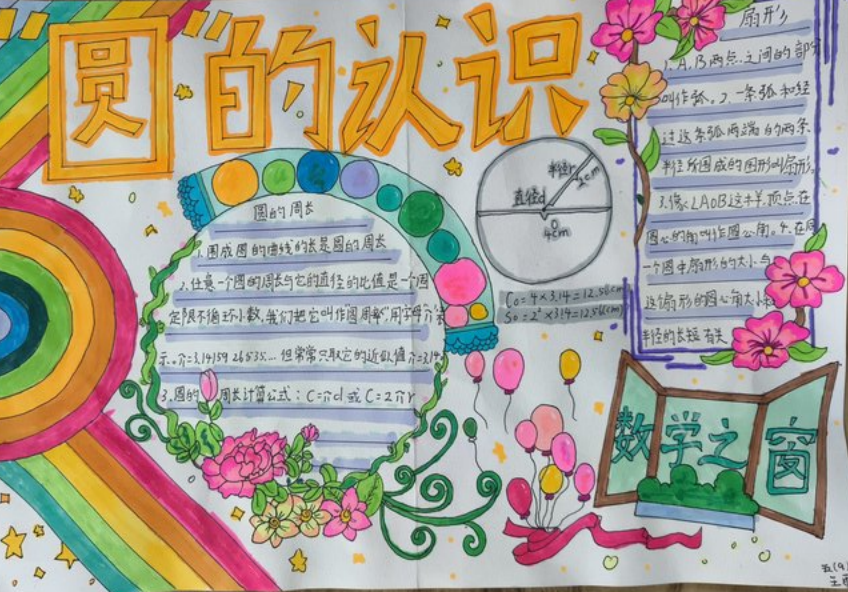 "圆"的认识
圆的周长
1.围成圆的曲线的长是圆的周长
2.任意一个圆的周长与它的直径的比值是一个固
定限不循环小数,我们把它叫作圆周率,用字母π表
示。π=3.1415926535...但常常只取它的近似值π≈3.14
3.圆的周长计算公式:C=πd或C=2πr
半径r
2cm
直径d
O
4cm
C○=4×3.14=12.56(cm)
S○=2²×3.14=12.56(cm)
扇形
1.A,B两点之间的部分
叫作弧。2.一条弧和经
过这条弧两端的两条
半径所围成的图形叫扇形。
3.像∠AOB这样,顶点在
圆心的角叫作圆心角。4.在同
一个圆中扇形的大小与
这个扇形的圆心角大小和
半径的长短有关
数学之窗
五(9)
王